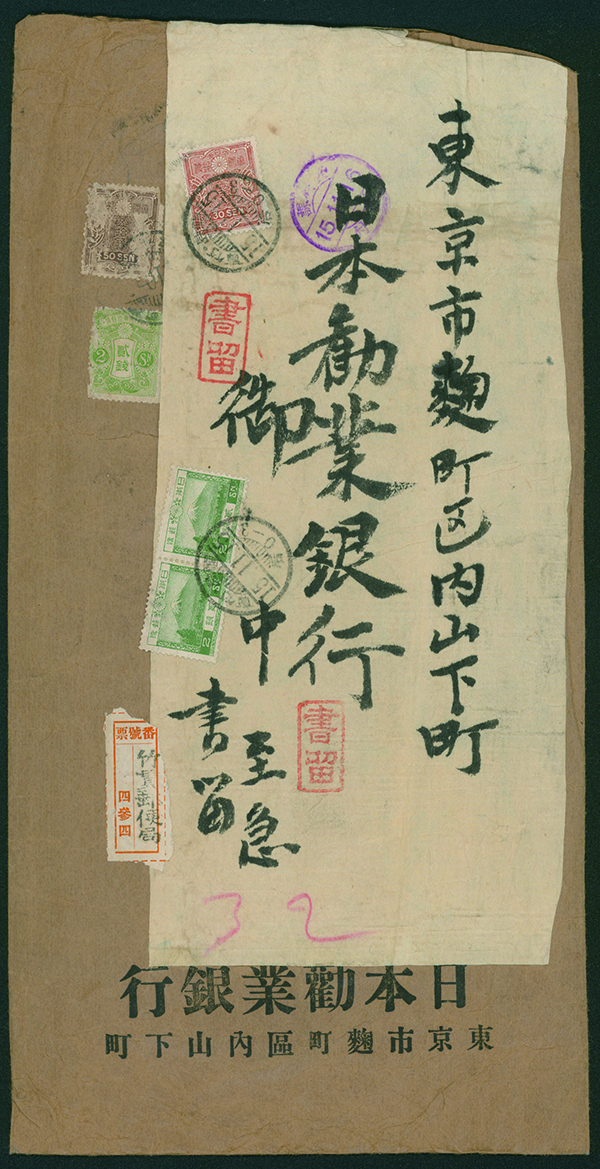 東京市麹町区内山下町
日本勧業銀行
御中
至急
書留
書留
書留
30 SEN
50 SEN
2 Sn
貳銭
15.11.16
番號票
竹貫郵便局
四參四
32
日本勸業銀行
東京市麴町區內山下町